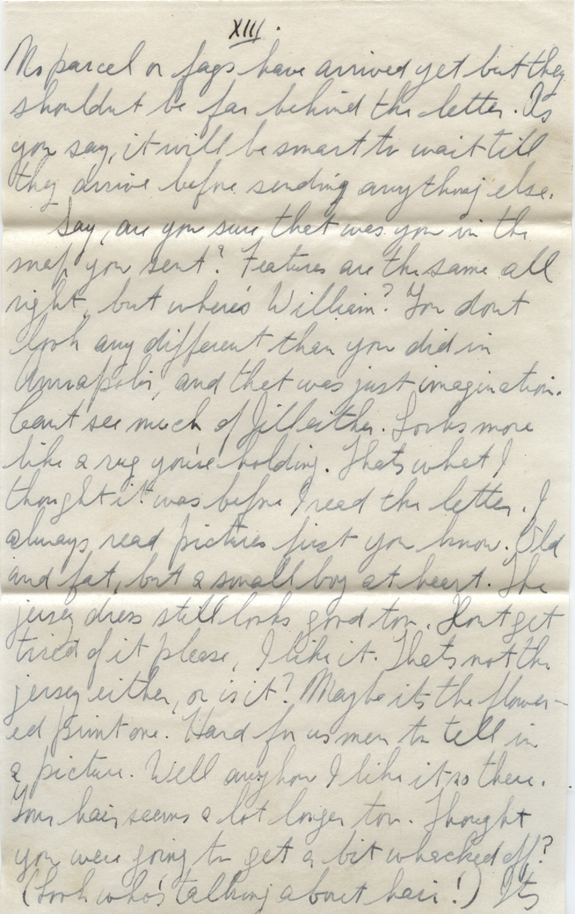 XIII.
No parcel or fags have arrived yet but they
shouldnt be far behind the letter. As
you say, it will be smart to wait till
they arrive before sending anything else.
Say, are you sure that was you in the
snap you sent? Features are the same all
right, but where's William? You dont
look any different than you did in
Annapolis, and that was just imagination.
Cant see much of Jill either. Looks more
like a rug you're holding. Thats what I
thought it was before I read the letter. I
always read pictures first you know. Old
and fat, but a small boy at heart. The
jersey dress still looks good too. Dont get
tired of it please, I like it. Thats not the
jersey either, or is it? Maybe its the flower-
ed print one. Hard for us men to tell in
a picture. Well anyhow I like it so there.
Your hair seems a lot longer too. Thought
you were going to get a bit whacked off?
(Look who's talking about hair!) Its